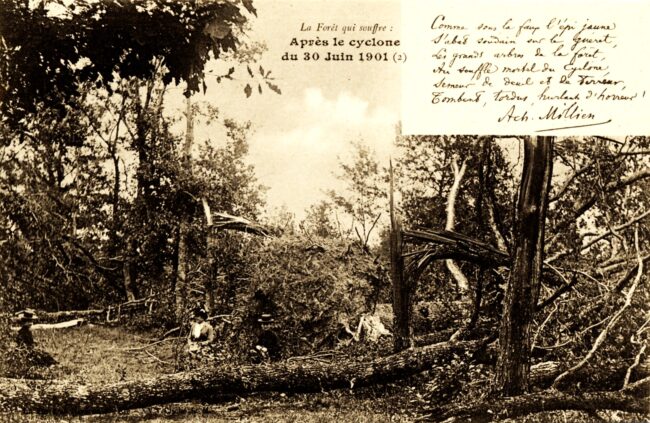 La Forêt qui souffre :
Après le cyclone
du 30 Juin 1901 (2)
Comme sous la faux l'épi jaune
S'abat soudain sur le guéret,
Les grands arbres de la forêt
Au souffle mortel du Cyclone,
Semeur de deuil et de terreur,
Tombent, tordus, hurlant d'horreur !
Ach. Millien